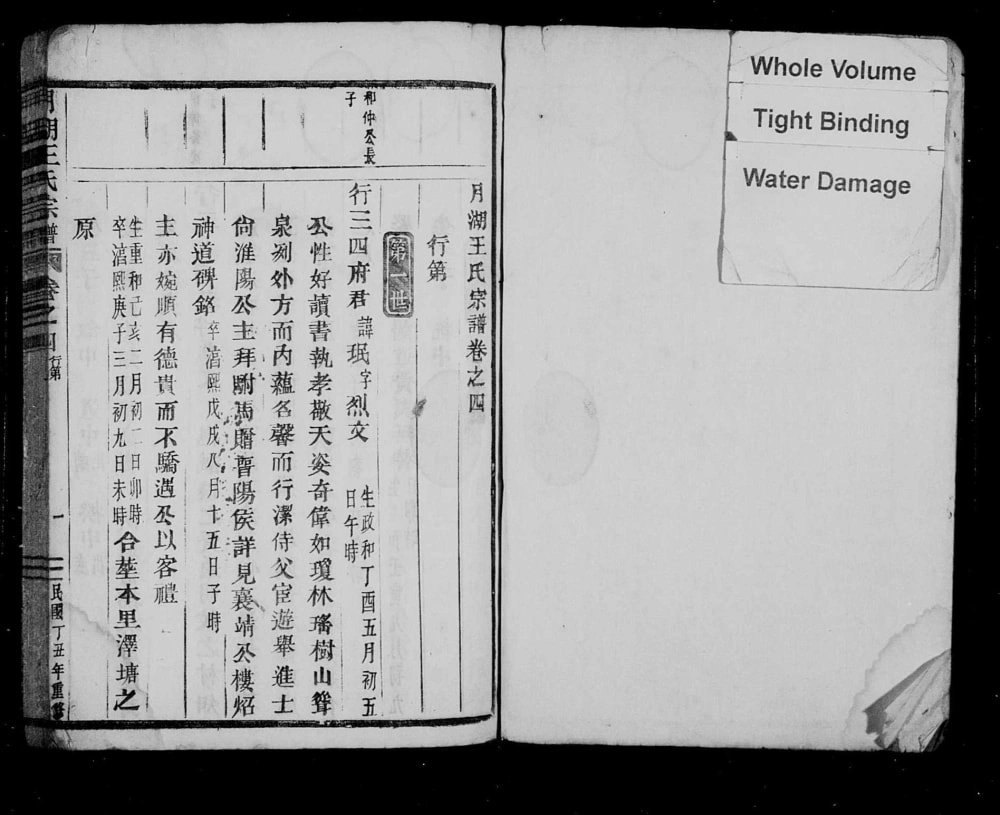 Whole Volume
Tight Binding
Water Damage
月湖王氏宗譜卷之四
行第
第一世
和仲公長
子
行三四府君 諱珉字烈文 生政和丁酉五月初五
日午時
公性好讀書執孝敬天姿奇偉如瓊林瑤樹山聳
泉冽外方而內蘊名馨而行潔侍父宦遊舉進士
尙淮陽公主拜駙馬贈晋陽侯詳見襄靖公樓炤
神道碑銘 卒淯熙戊戌八月十五日子時
主亦婉順有德貴而不驕遇公以客禮
生重和己亥二月初二日卯時
卒淯熙庚子三月初九日未時 合塟本里澤塘之
原
月湖王氏宗譜 卷之四 行第 一 民國丁丑年重修